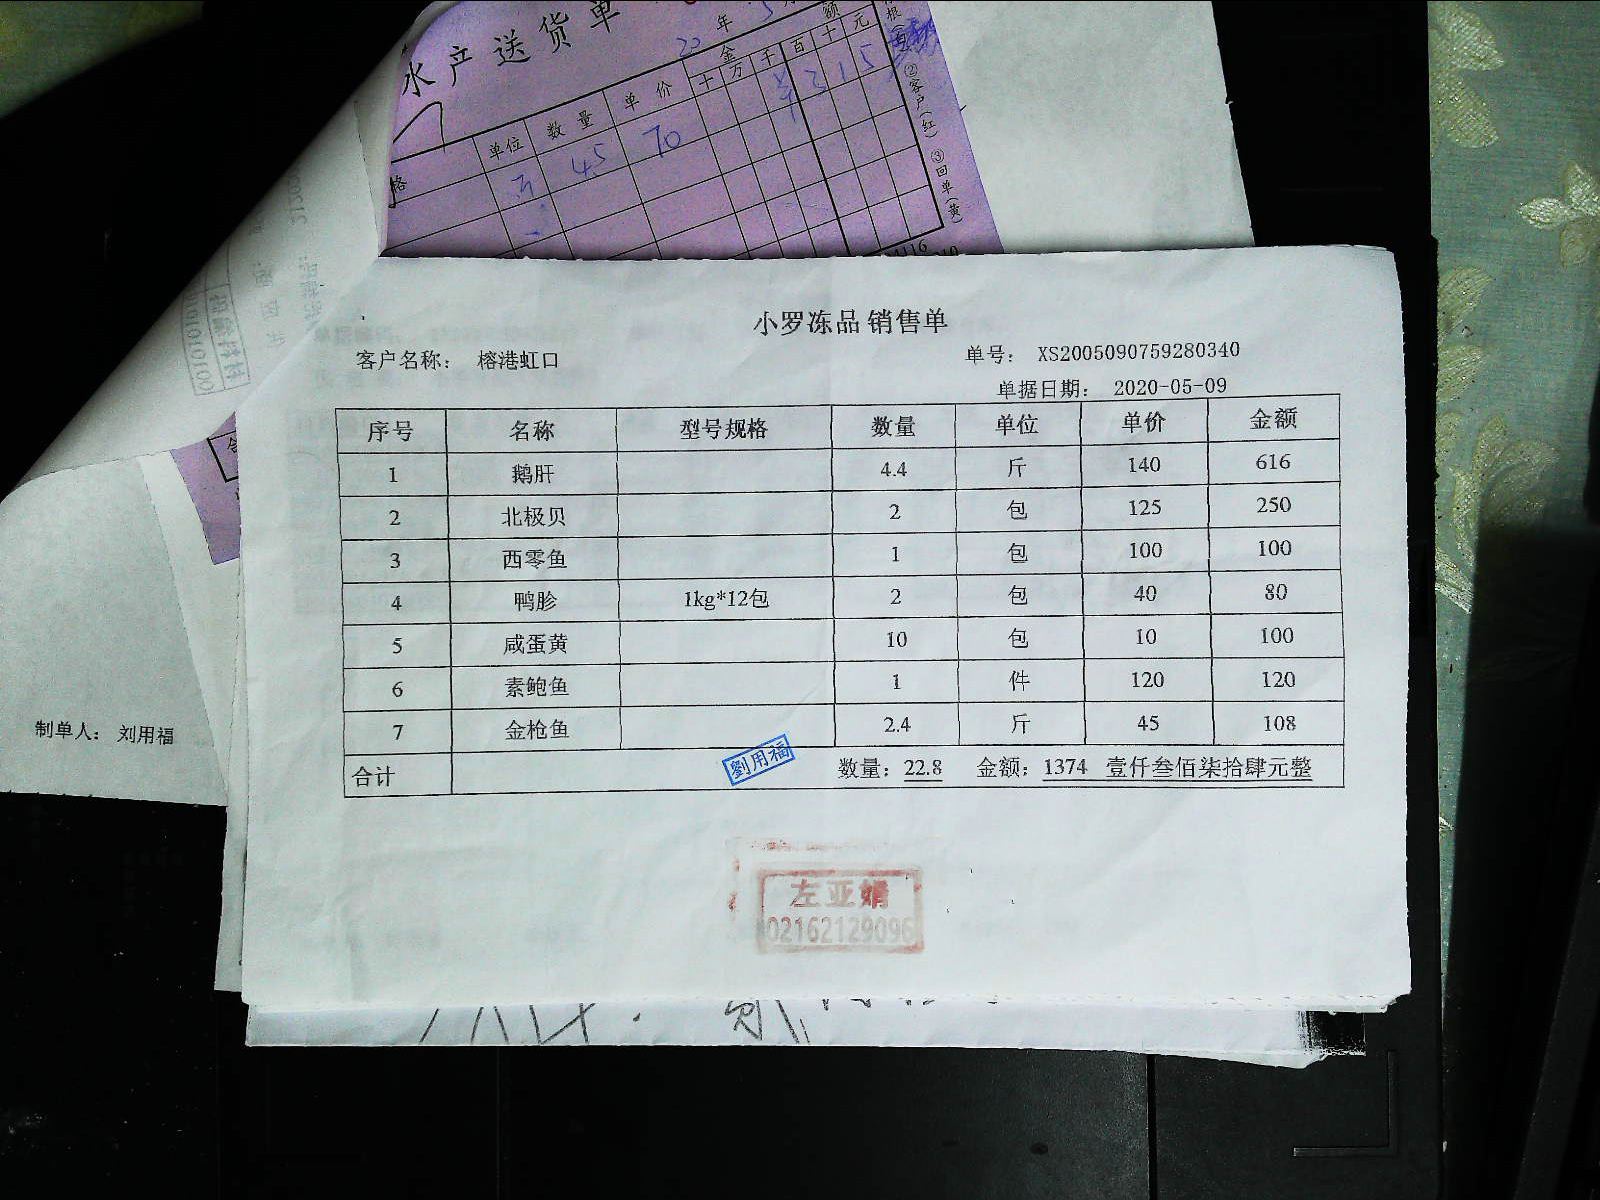 水产送货单
20 年 5
金 额
单位 数量 单价 十 万 千 百 十 元
格
斤 45 70 ¥ 3 1 5
②客户(红) ③回单(黄)
小罗冻品 销售单
客户名称： 榕港虹口 单号： XS2005090759280340
单据日期： 2020-05-09
序号 名称 型号规格 数量 单位 单价 金额
1 鹅肝 4.4 斤 140 616
2 北极贝 2 包 125 250
3 西零鱼 1 包 100 100
4 鸭胗 1kg*12包 2 包 40 80
5 咸蛋黄 10 包 10 100
6 素鲍鱼 1 件 120 120
7 金枪鱼 2.4 斤 45 108
合计 数量：22.8 金额：1374 壹仟叁佰柒拾肆元整
劉用福
左亚娟
02162129096
制单人： 刘用福